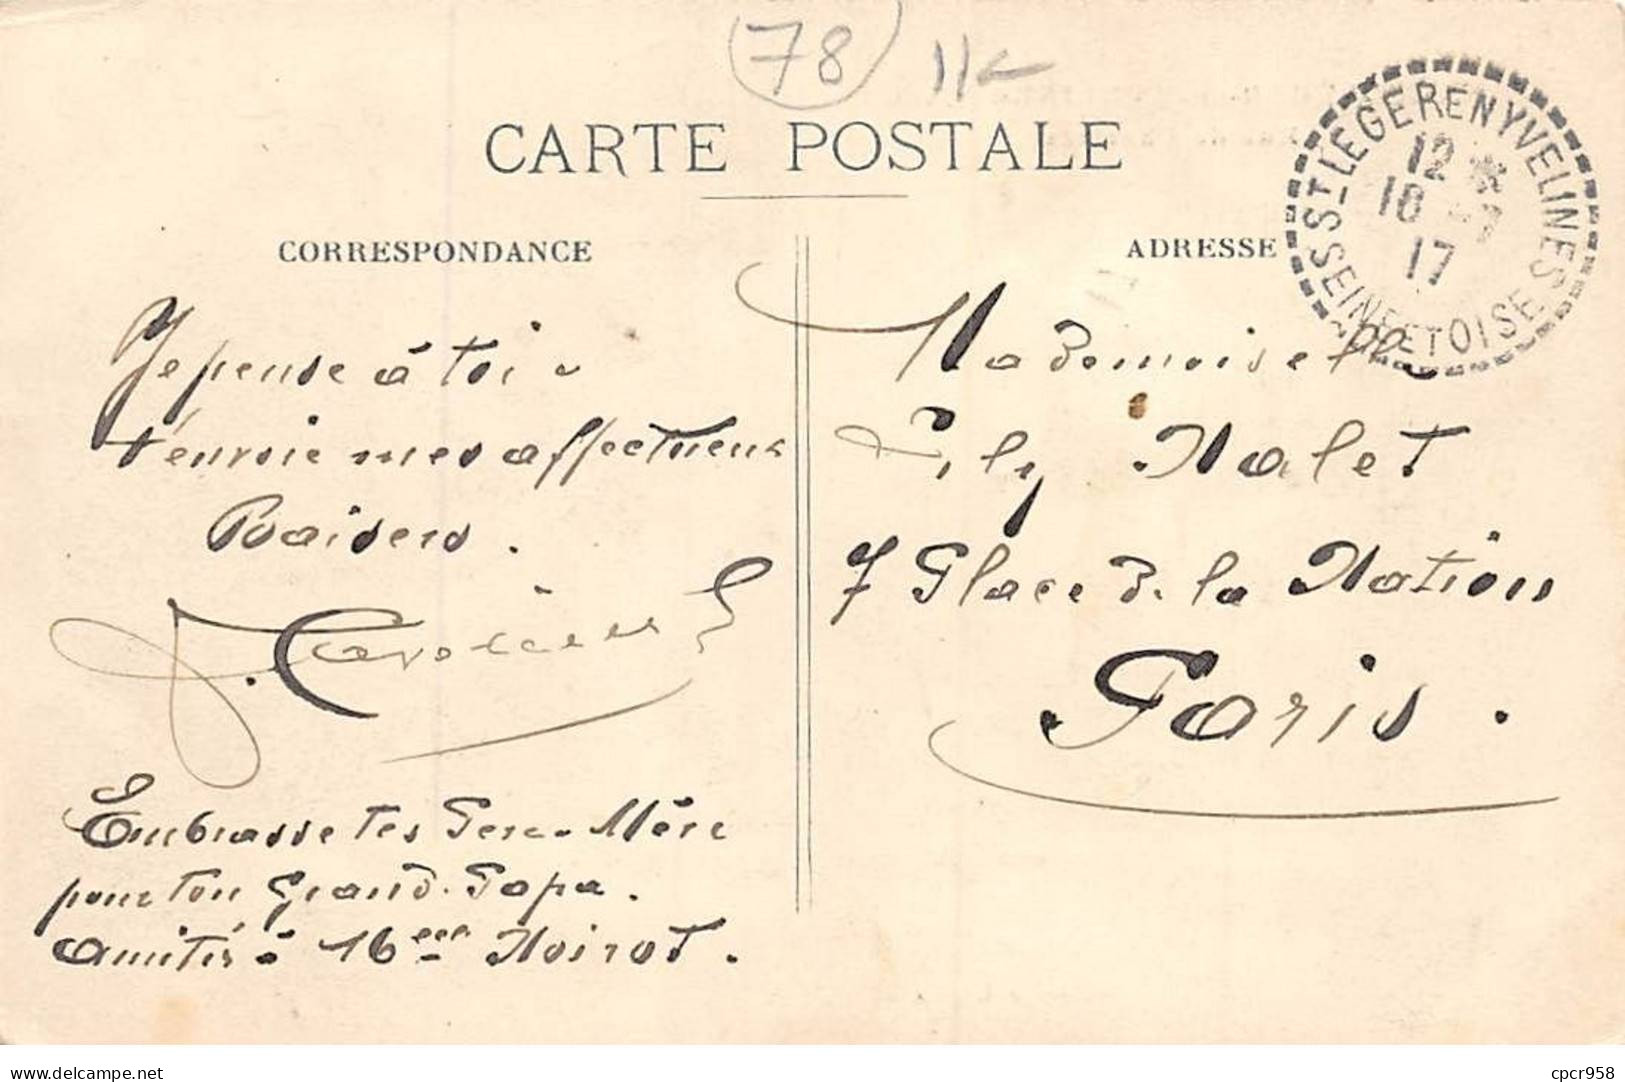 78
CARTE POSTALE
CORRESPONDANCE
ADRESSE
ST-LEGER EN YVELINES
SEINE ET OISE
12 *
10 -7
17
Je pense à toi
t'envoie mes affectueux
Baisers.
Mademoiselle
Lily Nalet
7 Place de la Nation
Paris.
Embrasse tes Père-Mère
pour ton Grand-Papa.
Amitiés à Melle Noirot.
delcampe.net
cpcr958